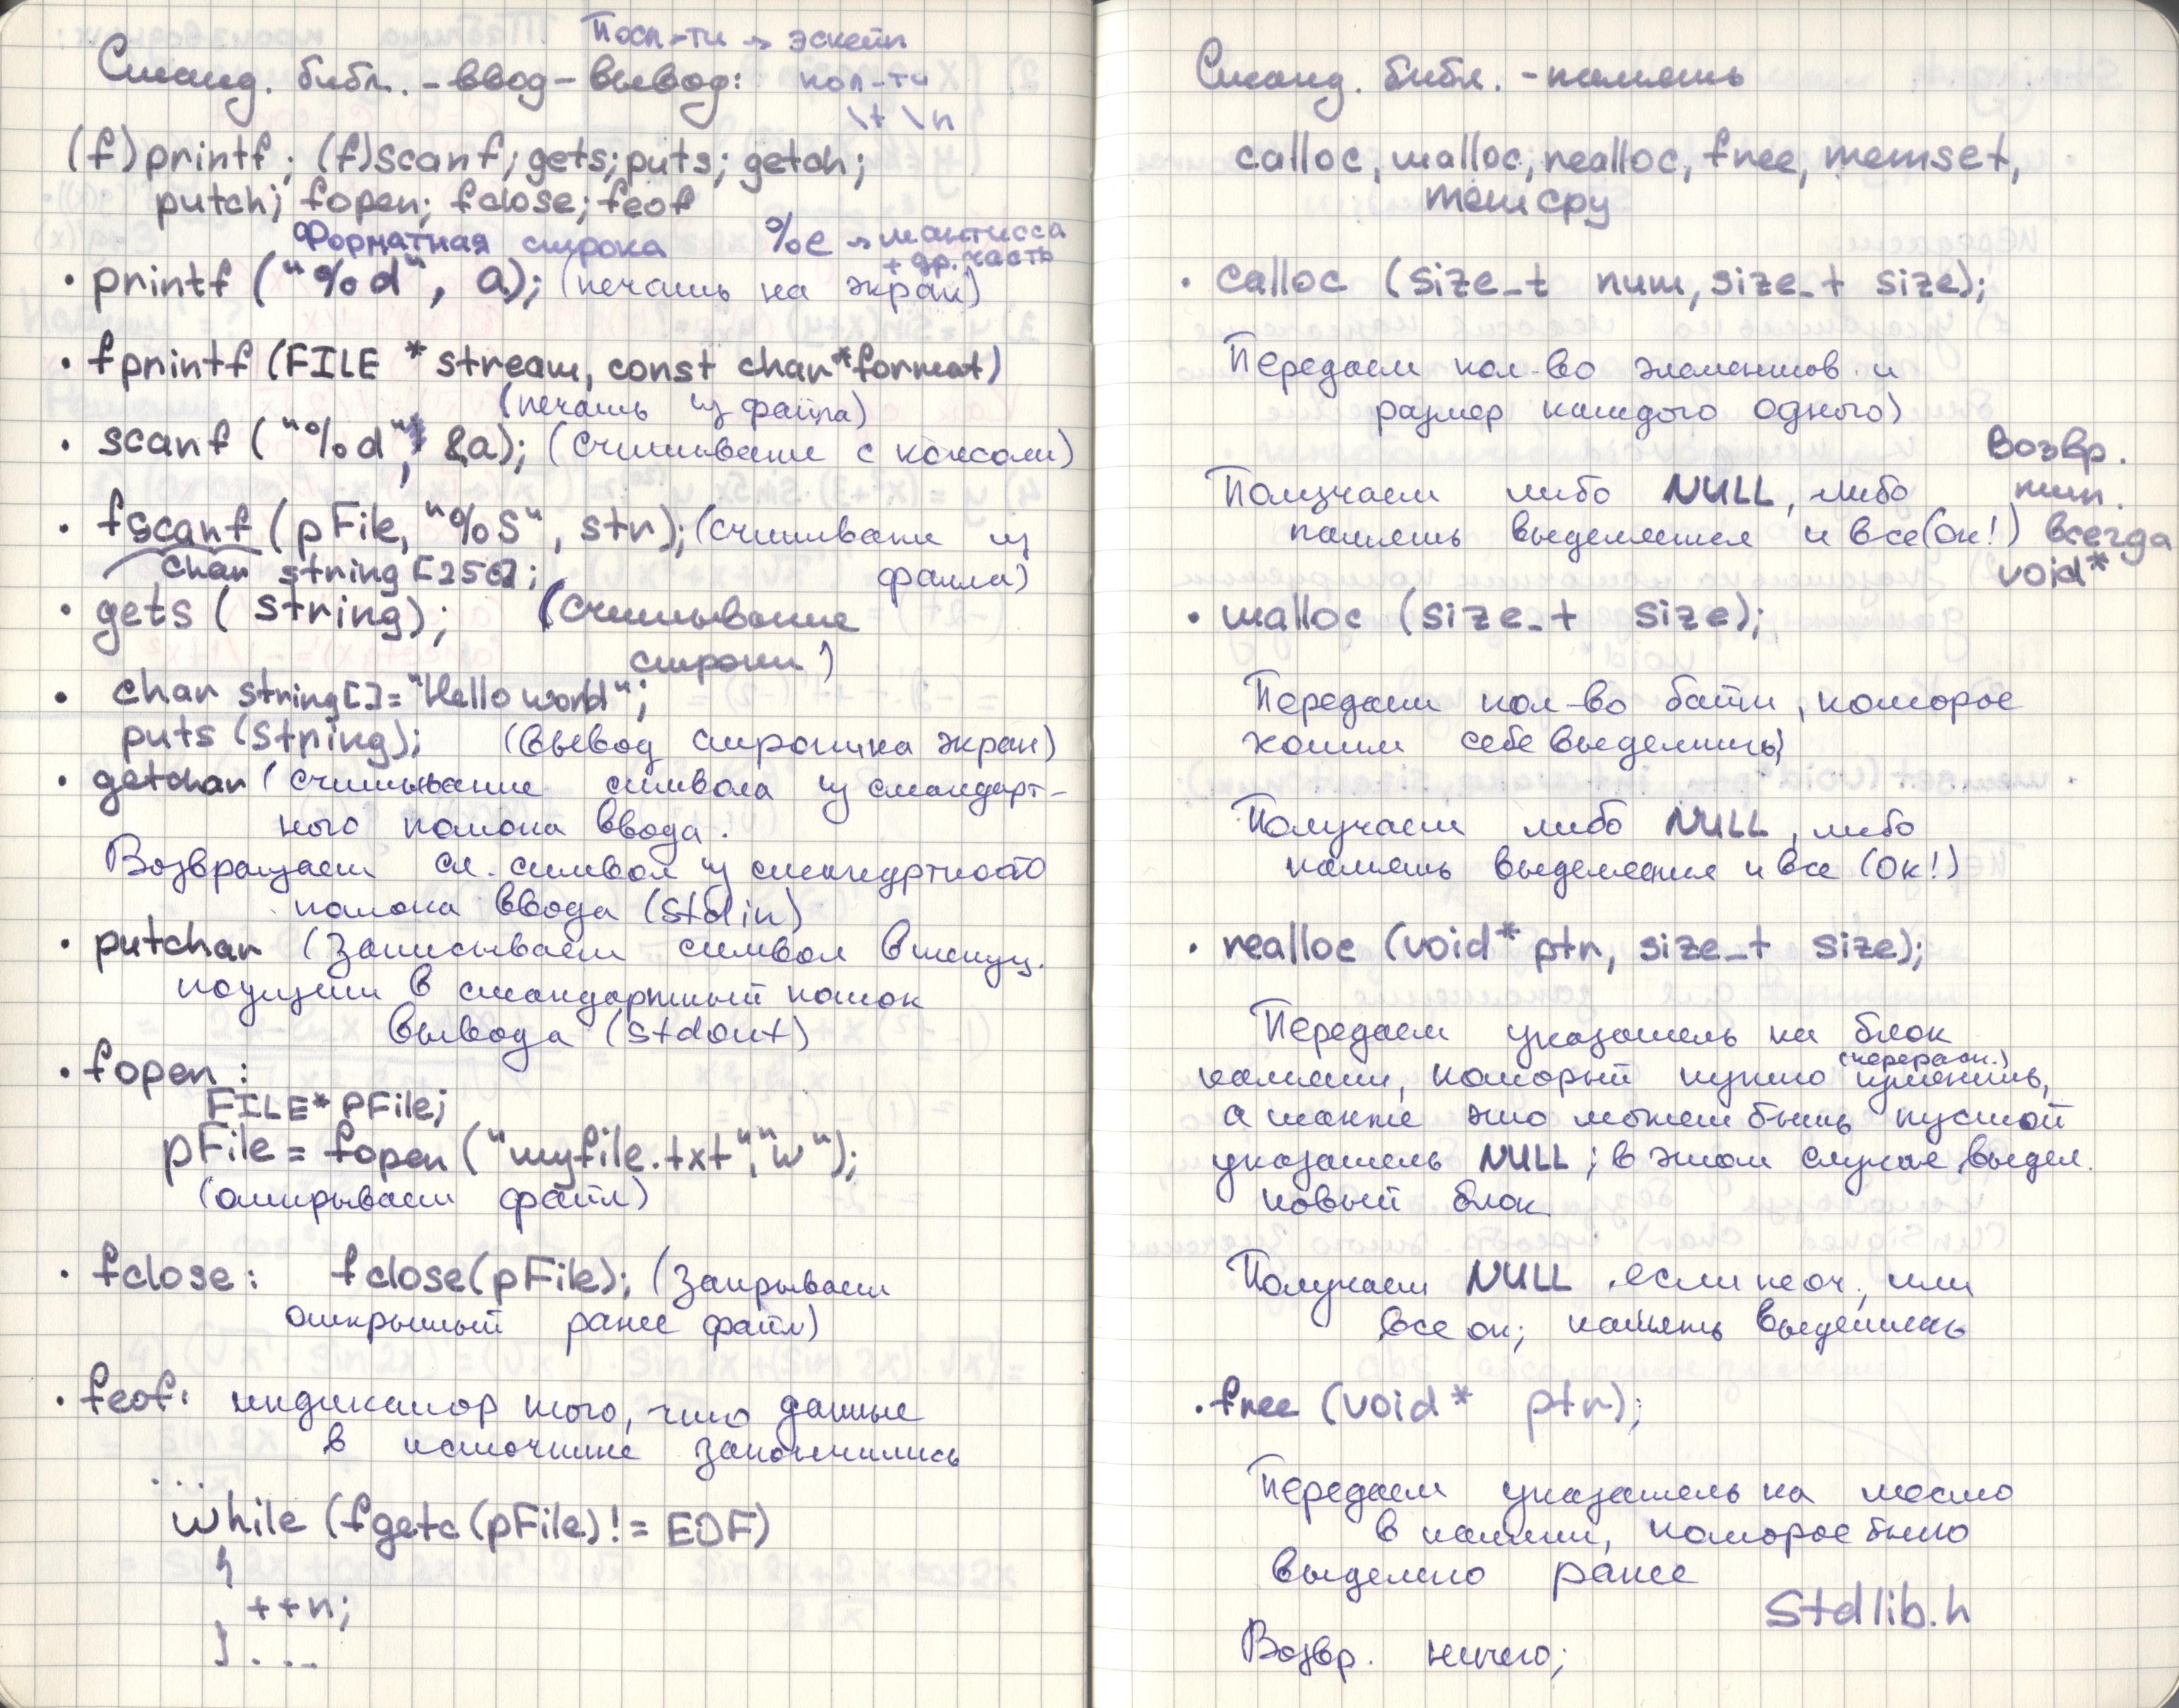 Посл-ти → эскейп
Станд. библ. - ввод - вывод: посл-ти
\t \n
(f)printf; (f)scanf; gets; puts; getch;
putch; fopen; fclose; feof
Форматная строка %e → мантисса
+ др. часть
· printf ("%d", a); (печать на экран)
· fprintf (FILE * stream, const char*format)
(печать из файла)
· scanf ("%d", &a); (считывание с консоли)
· fscanf (pFile, "%s", str); (считывание из
файла)
char string [256];
· gets (string); (считывание
строки)
· char string[]="Hello world";
puts (string); (вывод строки на экран)
· getchar (считывание символа из стандарт-
ного потока ввода.
Возвращает сл. символ из стандартного
потока ввода (stdin)
· putchar (записывает символ в текущ.
позиции в стандартный поток
вывода (stdout)
· fopen:
FILE* pFile;
pFile = fopen ("myfile.txt","w");
(открывает файл)
· fclose: fclose(pFile); (закрывает
открытый ранее файл)
· feof: индикатор того, что данные
в источнике закончились
...
while (fgetc(pFile) != EOF)
{
++n;
} ...
Станд. библ. - память
calloc, malloc, realloc, free, memset,
memcpy
· calloc (size_t num, size_t size);
Передаем кол-во элементов и
размер каждого одного)
Возвр.
тип.
всегда
void*
Получаем либо NULL, либо
память выделяется и все (Ок!)
· malloc (size_t size);
Передаем кол-во байт, которое
хотим себе выделить)
Получаем либо NULL, либо
память выделяется и все (Ок!)
· realloc (void* ptr, size_t size);
Передаем указатель на блок
памяти, который нужно изменить,
а также это может быть пустой
указатель NULL; в этом случае выдел.
новый блок
Получаем NULL если не оч., или
все ок; память выделилась
· free (void* ptr);
Передаем указатель на место
в памяти, которое было
выделено ранее
Stdlib.h
Возвр. ничего;